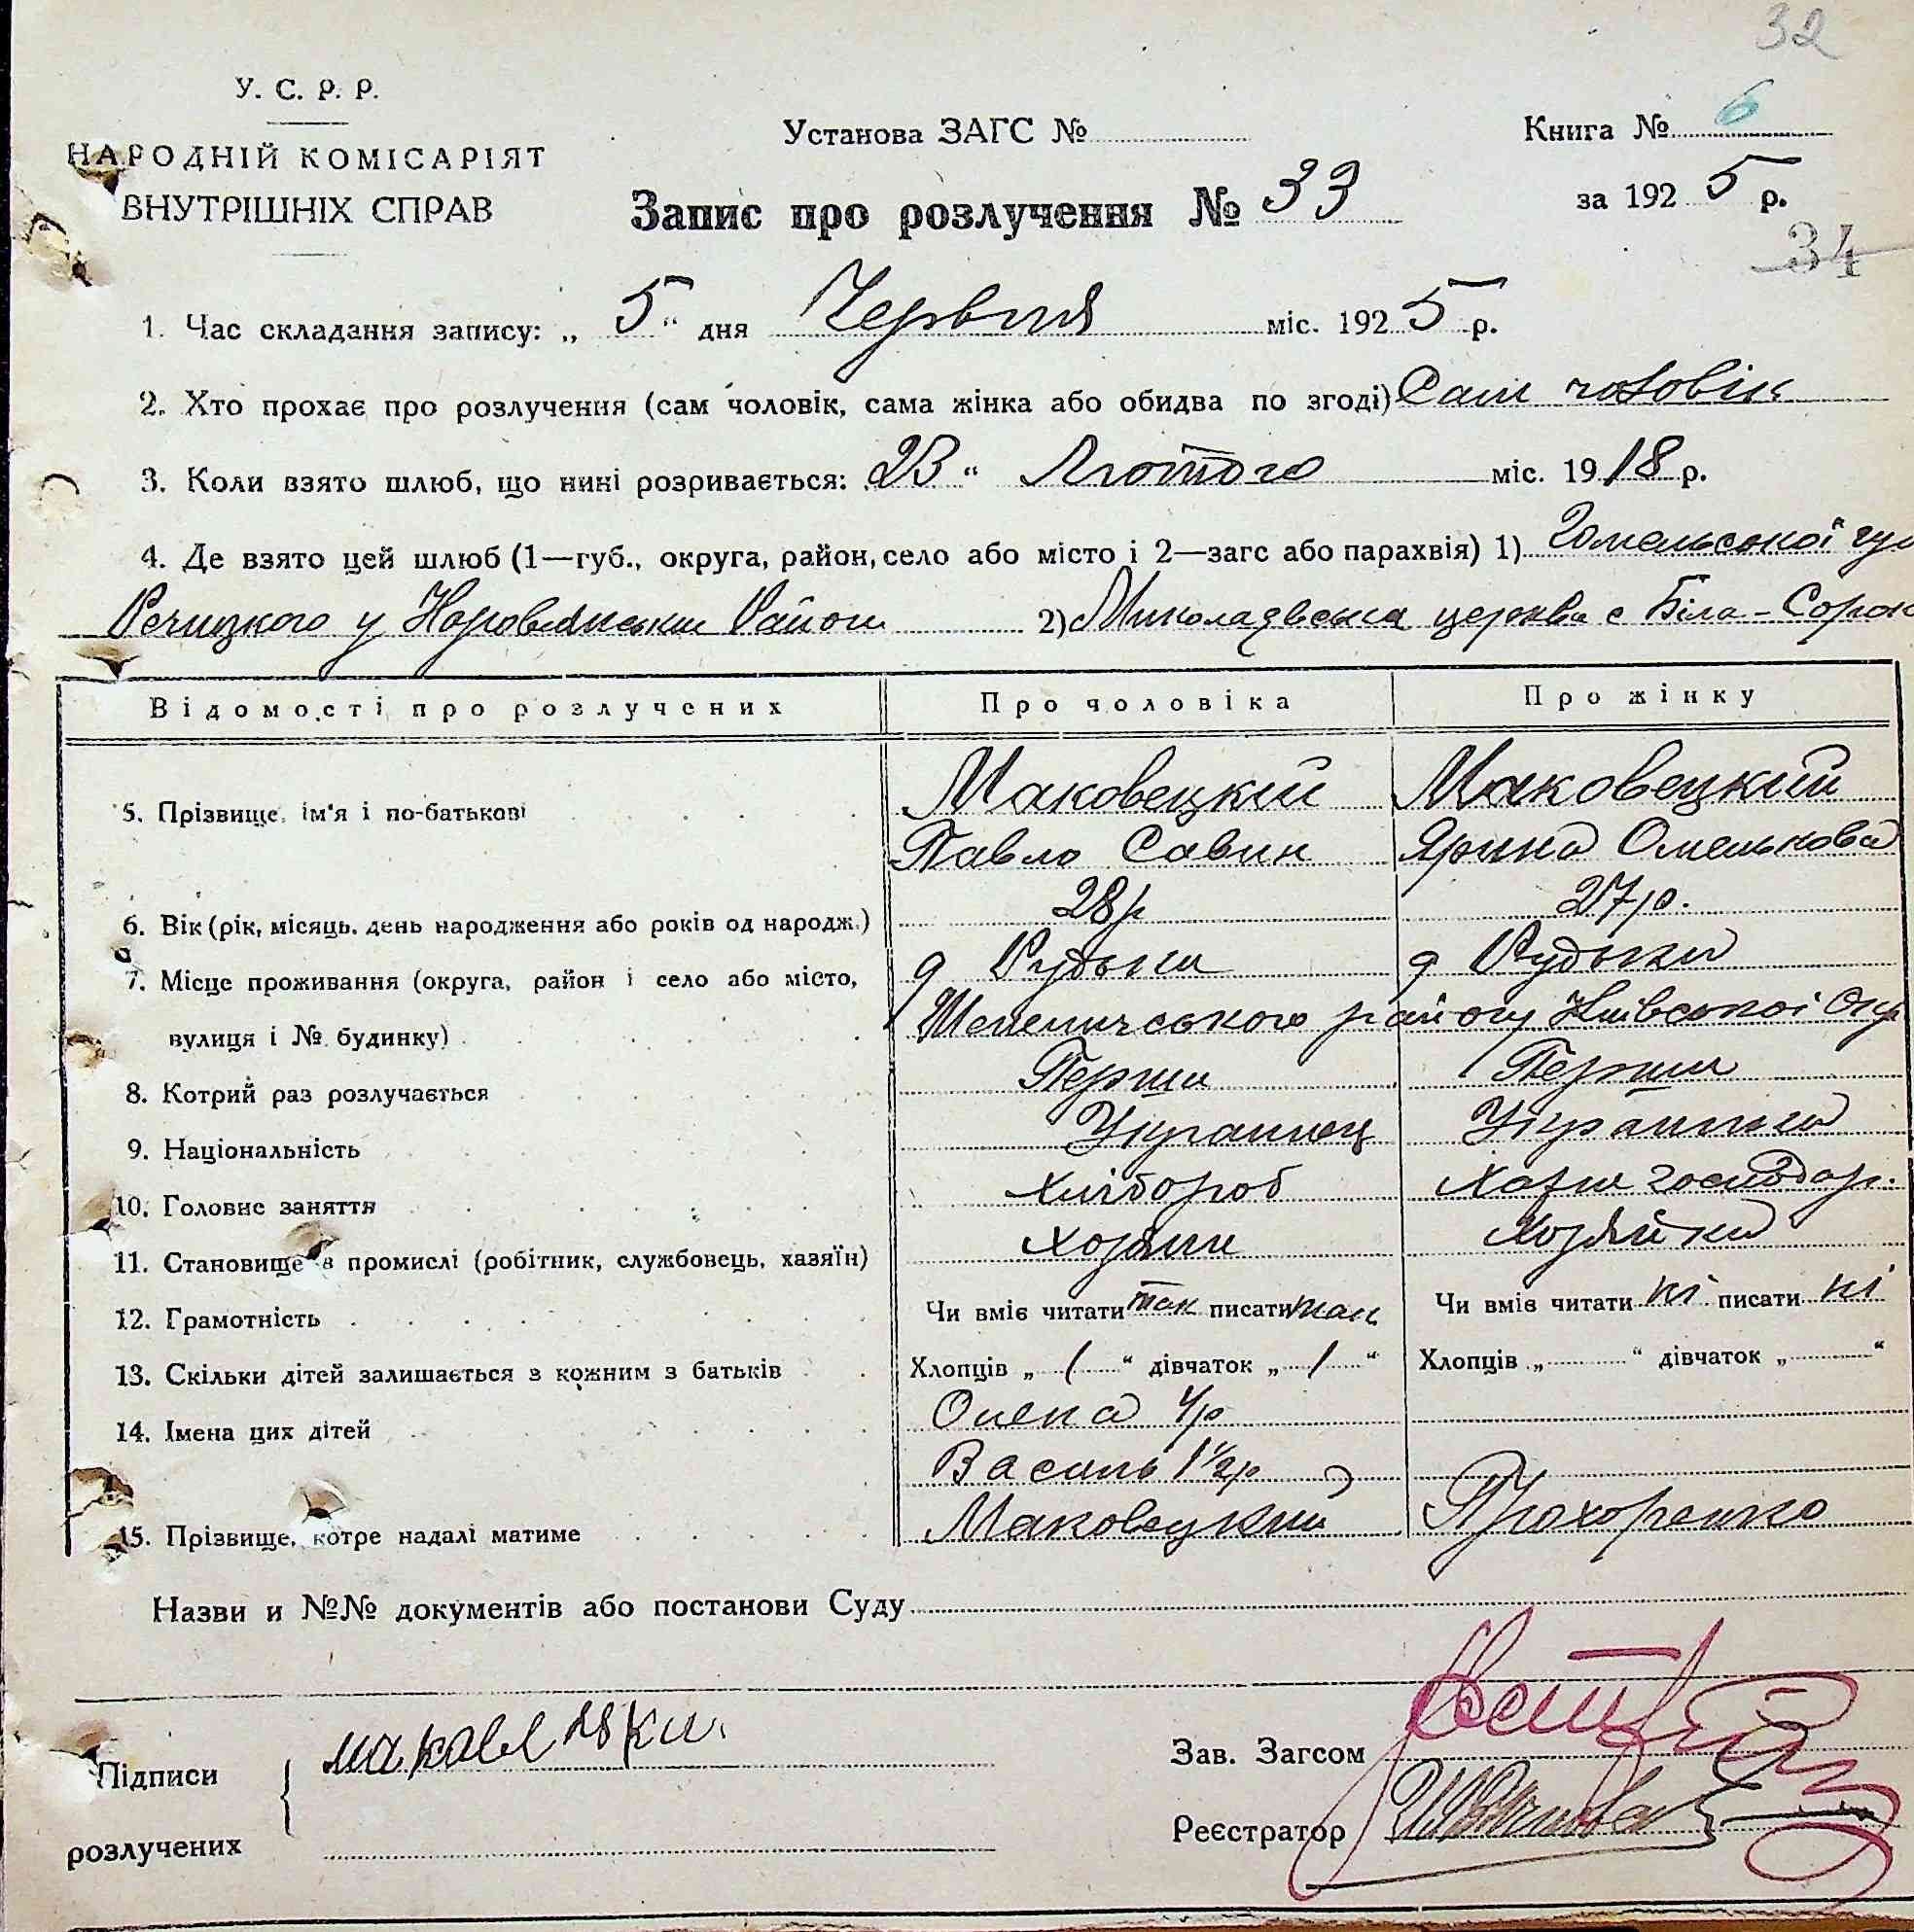 32
У. С. Р. Р.
НАРОДНІЙ КОМІСАРІЯТ
ВНУТРІШНІХ СПРАВ
Установа ЗАГС №
Книга № 6
за 1925 р.
Запис про розлучення № 33
34
1. Час складання запису: „ 5 “ дня Червня міс. 1925 р.
2. Хто прохає про розлучення (сам чоловік, сама жінка або обидва по згоді) Сам чоловік
3. Коли взято шлюб, що нині розривається: 23 “ Лютого міс. 1918 р.
4. Де взято цей шлюб (1—губ., округа, район, село або місто і 2—загс або парахвія) 1) Гомельської гу
Речицкого у Наровлянськи Район 2) Миколаєвська церква с Біла-Сорок
Відомості про розлучених Про чоловіка Про жінку
5. Прізвище, ім'я і по-батькові Маковецкий Маковецкий
Павло Савин Ярина Омелькова
6. Вік (рік, місяць, день народження або років од народж.) 28р 27р.
7. Місце проживання (округа, район і село або місто, д Рудьки д Рудьки
вулиця і № будинку) Шепеличського району Київської Окр
8. Котрий раз розлучається Перши Перши
9. Національність Украинец Украинка
10. Головне заняття Хлібороб Хатне господар.
11. Становище в промислі (робітник, службовець, хазяїн) Хозяин Хозяйка
12. Грамотність Чи вміє читати так писати так Чи вміє читати ні писати ні
13. Скільки дітей залишається з кожним з батьків Хлопців „ 1 “ дівчаток „ 1 “ Хлопців „ “ дівчаток „ “
14. Імена цих дітей Олена 4р
Василь 1½р
15. Прізвище, котре надалі матиме Маковецкий Прохоренко
Назви и №№ документів або постанови Суду
Підписи
розлучених
Зав. Загсом
Реєстратор